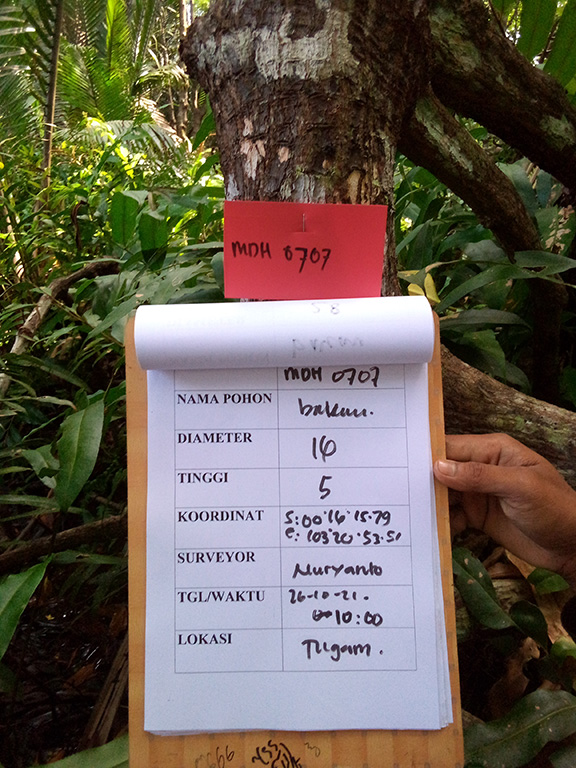 MDH 0707
MDH 0707
NAMA POHON bakau.
DIAMETER
TINGGI 5
KOORDINAT S:00°16'15.79
e: 103°20'53.51
SURVEYOR Nuryanto
TGL/WAKTU 26-10-21.
10:00
LOKASI Tugam.